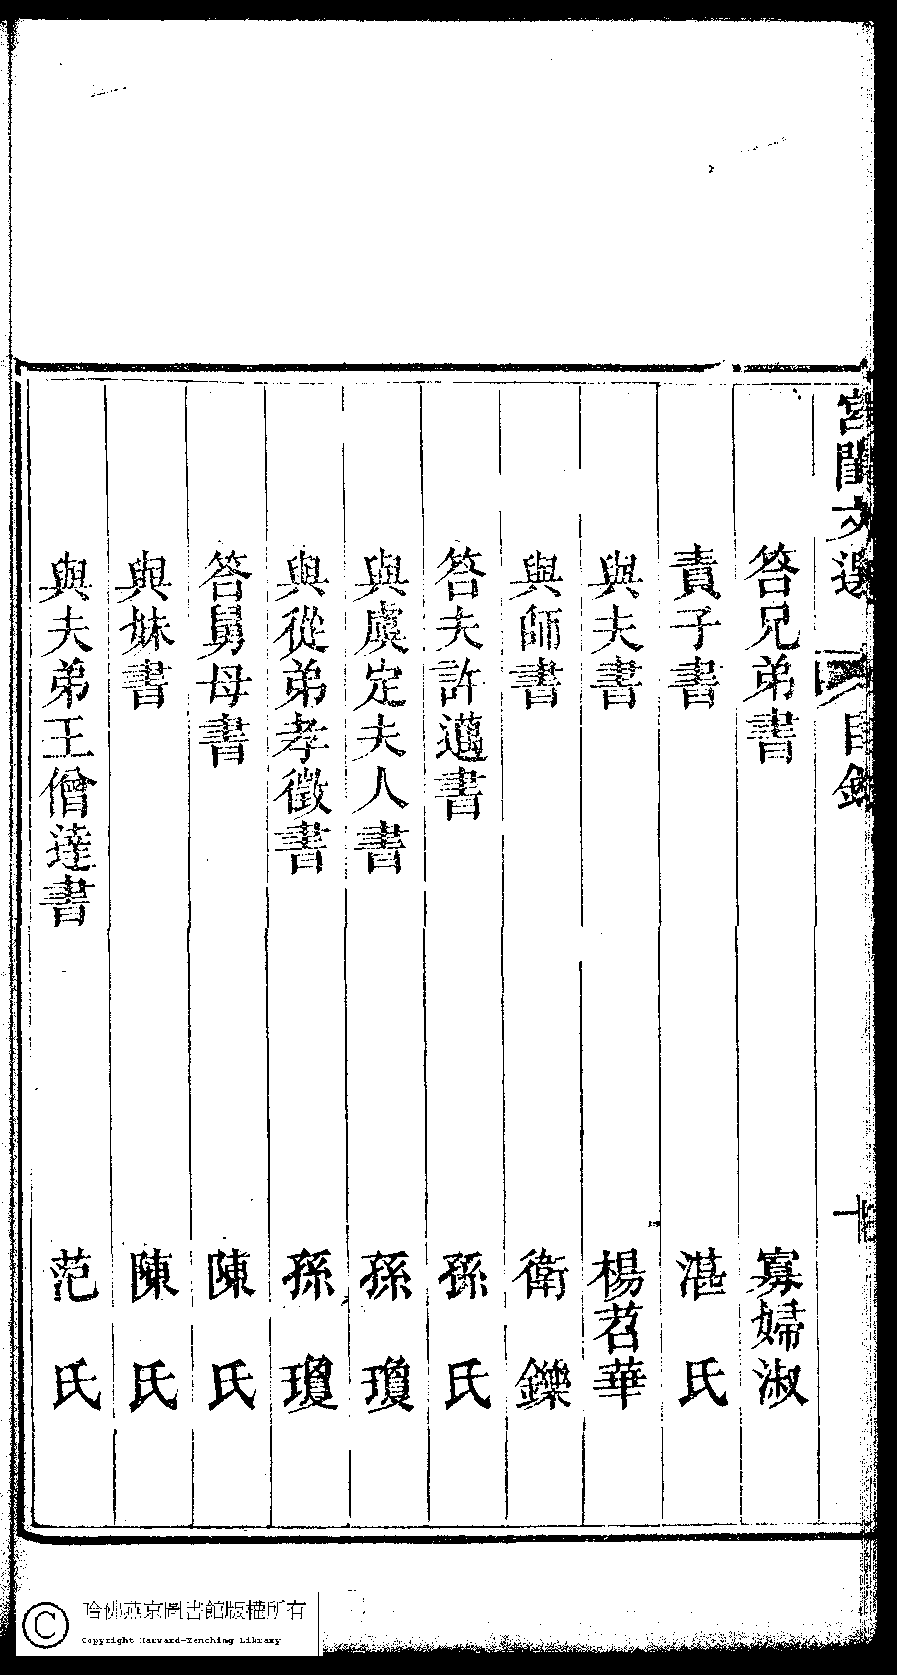 宮閨文選 目錄 十
答兄弟書 寡婦淑
責子書 湛氏
與夫書 楊苕華
與師書 衛鑠
答夫許邁書 孫氏
與虞定夫人書 孫瓊
與從弟孝徵書 孫瓊
答舅母書 陳氏
與妹書 陳氏
與夫弟王僧達書 范氏
哈佛燕京圖書館版權所有
Copyright Harvard-Yenching Library